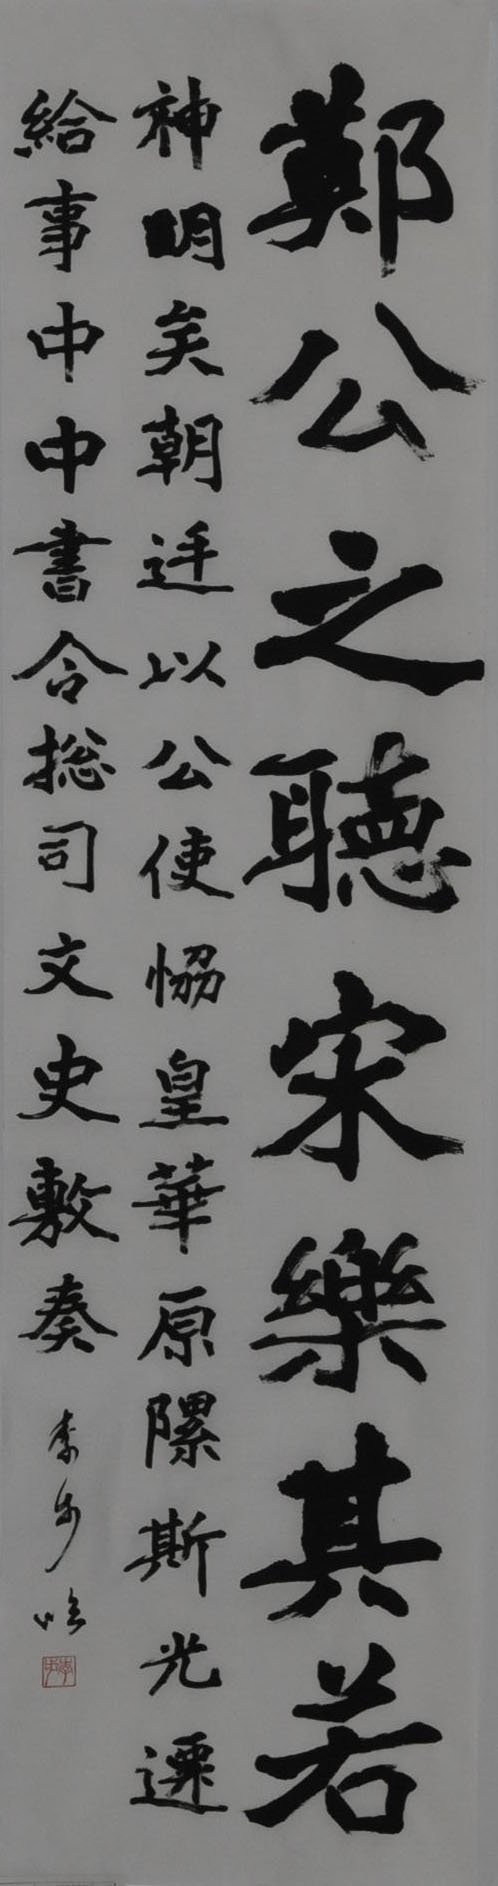 鄭公之聽宋樂其若
神明矣朝廷以公使恊皇華原隰斯光遷
給事中中書令揔司文史敷奏
李步